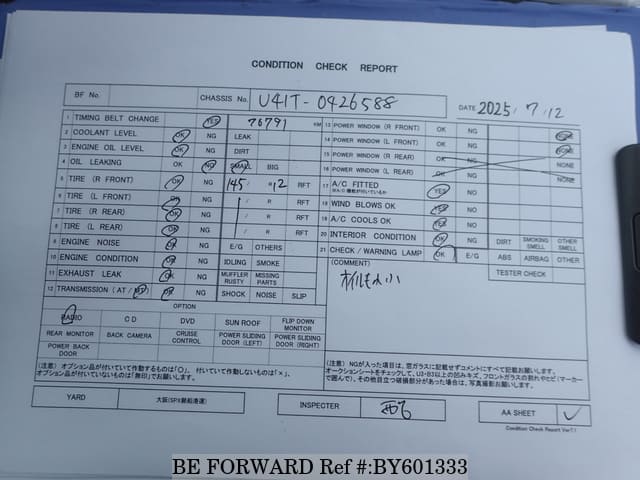 CONDITION CHECK REPORT
BF No. CHASSIS No. U41T-0426588 DATE 2025, 7, 12
1 TIMING BELT CHANGE YES 76791 KM
2 COOLANT LEVEL OK NG LEAK
3 ENGINE OIL LEVEL OK NG DIRT
4 OIL LEAKING OK NG SMALL BIG
5 TIRE (R FRONT) OK NG 145/ R12 RFT
6 TIRE (L FRONT) OK NG / R RFT
7 TIRE (R REAR) OK NG / R RFT
8 TIRE (L REAR) OK NG / R RFT
9 ENGINE NOISE OK NG E/G OTHERS
10 ENGINE CONDITION OK NG IDLING SMOKE
11 EXHAUST LEAK OK NG MUFFLER RUSTY MISSING PARTS
12 TRANSMISSION (AT/MT) OK NG SHOCK NOISE SLIP
13 POWER WINDOW (R FRONT) OK NG NONE
14 POWER WINDOW (L FRONT) OK NG NONE
15 POWER WINDOW (R REAR) OK NG NONE
16 POWER WINDOW (L REAR) OK NG NONE
17 A/C FITTED YES NO
18 WIND BLOWS OK YES NO
19 A/C COOLS OK YES NO
20 INTERIOR CONDITION OK NG DIRT SMOKING SMELL OTHER SMELL
21 CHECK/WARNING LAMP OK E/G ABS AIRBAG OTHER
(COMMENT) TESTER CHECK
OPTION
RADIO CD DVD SUN ROOF FLIP DOWN MONITOR
REAR MONITOR BACK CAMERA CRUISE CONTROL POWER SLIDING DOOR (LEFT) POWER SLIDING DOOR (RIGHT)
POWER BACK DOOR
(注意) オプション品が付いていて作動するものは「〇」、付いていて作動しないものは「×」、
オプション品が付いていないものは「無印」でお願いします。
(注意) NGが入った項目は、窓ガラスに記載せずコメントにすべて記載お願いします。
オークションシートをチェックして、U3・B3以上の凹みキズ、フロントガラスの割れやヒビ(マーカー
で囲んで)、その他目立つ破損部分があった場合は、写真撮影お願いします。
YARD 大阪(SPX鶴船港運) INSPECTER AA SHEET ✓
Condition Check Report Ver7.1
BE FORWARD Ref #:BY601333